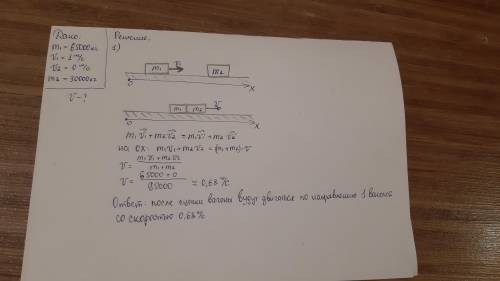 Дано:
m₁ = 65000 кг
v₁ = 1 м/с
v₂ = 0 м/с
m₂ = 30000 кг
v - ?
Решение:
1)
m₁ v₁ m₂
0 X
m₁ m₂ v
0 X
m₁v⃗₁ + m₂v⃗₂ = m₁v⃗ + m₂v⃗
на OX: m₁v₁ + m₂v₂ = (m₁ + m₂)·v
v = (m₁v₁ + m₂v₂) / (m₁ + m₂)
v = (65000 + 0) / 95000 ≈ 0,68 м/с
Ответ: после сцепки вагоны будут двигатся по направлению 1 вагона
со скоростью 0,68 м/с